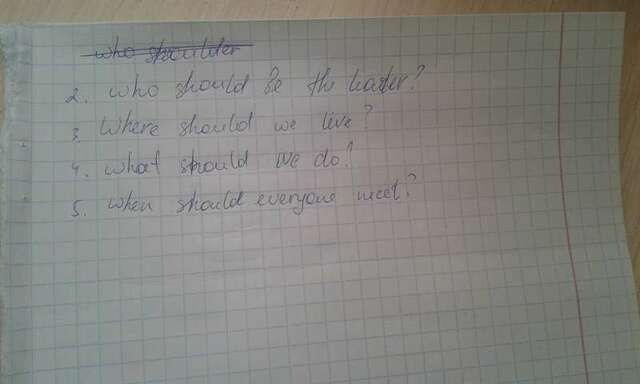 who shoulder
2. who should be the leader?
3. Where should we live?
4. what should we do?
5. when should everyone meet?